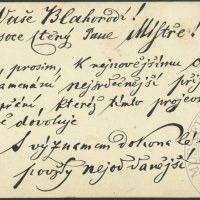 Vaše Blahorodí!
soce ctěný Pane Mistře!
prosím, k nejnovějšímu
menání nejsrdečnější
ání které tímto projev
dovoluje
S významem dokonalé
poucty nejoddanější